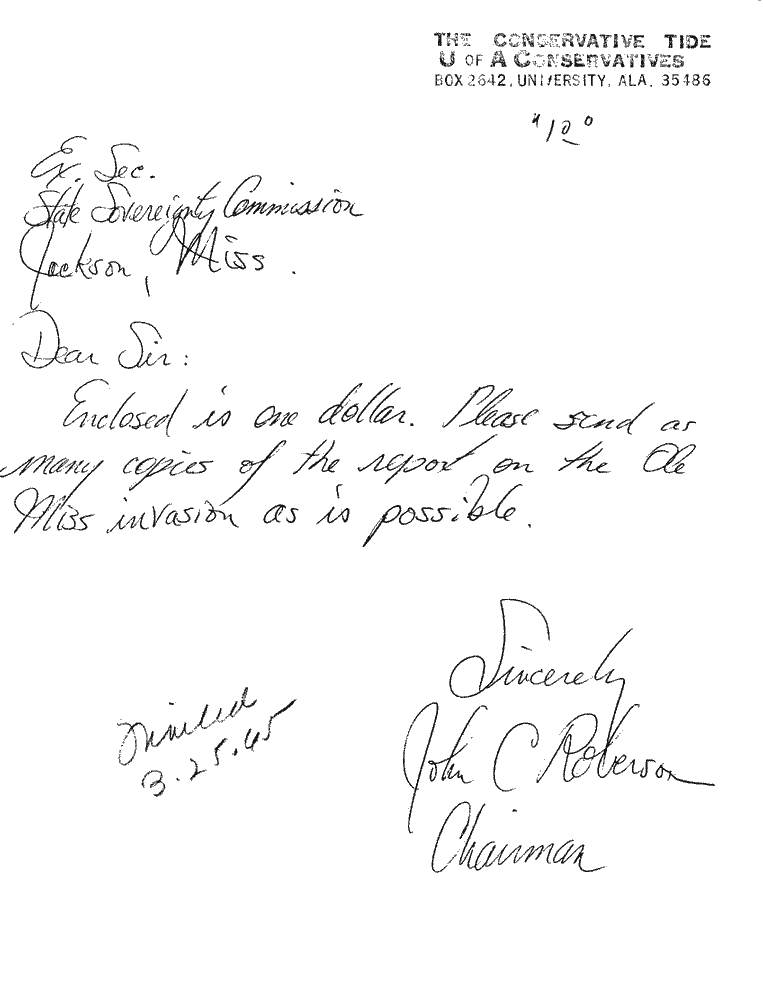 THE CONSERVATIVE TIDE
U OF A CONSERVATIVES
BOX 2642, UNIVERSITY, ALA. 35486
Ex. Sec.
State Sovereignty Commission
Jackson, Miss.
Dear Sir:
Enclosed is one dollar. Please send as
many copies of the report on the Ole
Miss invasion as is possible.
Sincerely
John C Roberson
Chairman
mailed
3.25.65